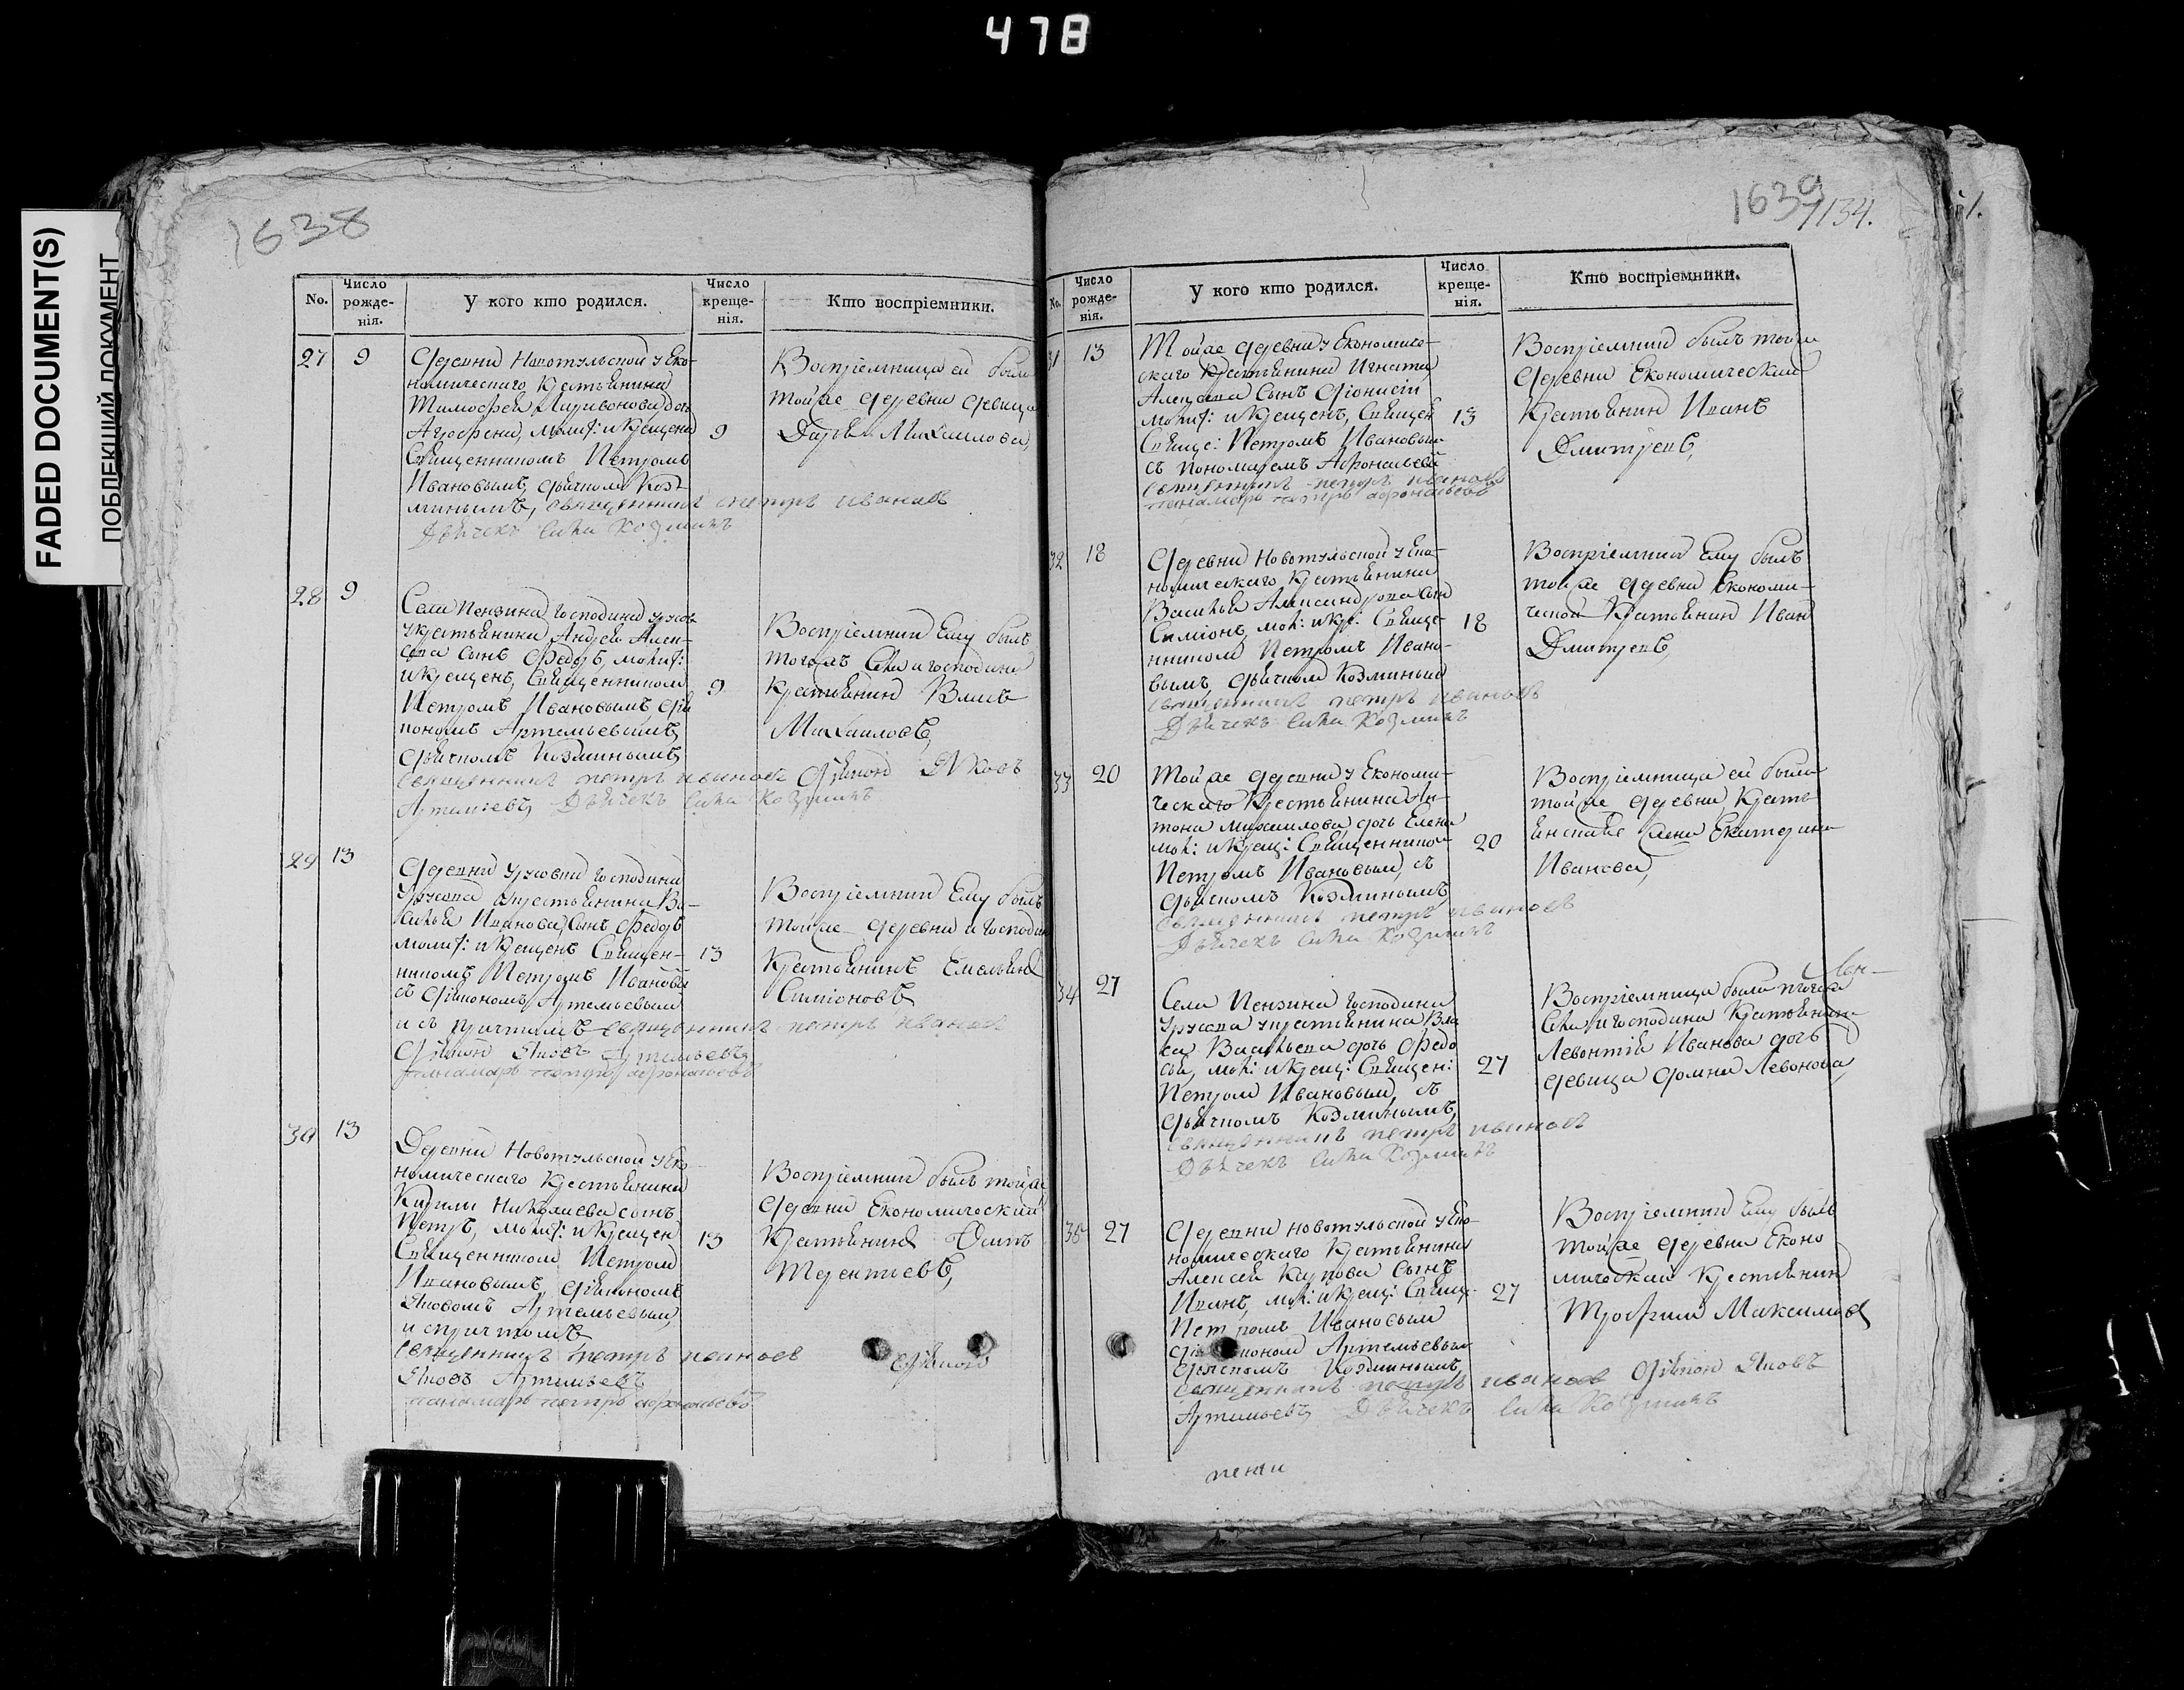 478
FADED DOCUMENT(S)
ПОБЛЕКШИЙ ДОКУМЕНТ
1638
No. Число рожденія. У кого кто родился. Число крещенія. Кто воспріемники.
27 9 Деревни Новотульской у Эко-
номическаго Крестьянина
Тимофея Ларивонова дочь
Агрофена, молит: и крещена 9
Священникомъ Петромъ
Ивановымъ, дьячкомъ Коз-
минымъ, священникъ петръ ивановъ
Дьячекъ сила Козминъ
Воспріемница ей была
тойже деревни девица
Дарья Михаилова,
28 9 Села Пензина господина
у крестьянина Андрея Алек-
сева сынъ Федоръ, молит:
и крещенъ, Священникомъ 9
Петромъ Ивановымъ, дiя-
кономъ Артемьевымъ,
дьячкомъ Козминымъ,
священникъ петръ ивановъ Діяконъ Яковъ
Артемьевъ, Дьячекъ сила Козминъ
Воспріемникъ ему былъ
тогожъ села и господина
крестьянинъ Власъ
Михаиловъ,
29 13 Деревни господина
у крестьянина Ва-
силья Иванова Сынъ Федоръ
молит: и крещенъ Священ- 13
никомъ Петромъ Ивановы
съ діякономъ Артемьевым
и съ причтомъ священникъ петръ иванов
Діяконъ Яковъ Артемьевъ
панамарь петръ афонасьевъ
Воспріемникъ ему былъ
тойже деревни и господина
Крестьянинъ Емельянъ
Симіоновъ,
30 13 Деревни Новотульской у Эко-
номическаго Крестьянина
Кирили Николаева сынъ
Петръ, молит: и крещен 13
Священником Петром
Ивановымъ, діякономъ
Яковомъ Артемьевым,
и спричтомъ
священникъ петръ ивановъ діяконъ
Яковъ Артемьевъ
панамарь петръ афонасьевъ
Воспріемник былъ тойже
Деревни Економический
Крестьянинъ Осипъ
Терентьевъ,
1639
1134.
No. Число рожденія. У кого кто родился. Число крещенія. Кто воспріемники.
31 13 Тойже деревни у Економиче-
скаго Крестьянина Игната
Алексева Сынъ Діонисій
молит: и крещенъ, Священ 13
Священ: Петромъ Ивановым
съ пономаремъ Афонасьевы
священникъ петръ ивановъ
панамарь петръ афонасьевъ
Воспріемник былъ тойже
деревни Економический
Крестьянин Иванъ
Дмитревъ,
32 18 Деревни Новотульской у Эко-
номическаго Крестьянина
Василья Александрова сын
Симіонъ, мол: и кре: Священ- 18
нником Петромъ Ивано-
вымъ, дьячком Козминым
священникъ петръ ивановъ
Дьячекъ сила Козминъ
Воспріемник Ему былъ
тойже деревни Економи-
ческой Крестьянин Иван
Дмитревъ,
33 20 Тойже деревни у Економи-
ческаго Крестьянина Ан-
тона михаилова, дочь Елена
мол: и крещ: Священником 20
Петромъ Ивановым, съ
дьячкомъ Козминымъ,
священникъ петръ ивановъ
Дьячекъ сила Козминъ
Воспріемница ей была
тойже деревни, Кресть
янина жена Екатерина
Иванова,
34 27 Села Пензина господина
у крестьянина Вла
са Васильева дочь Федо
сья, мол: и крещ: Священ: 27
Петром Ивановым, съ
дьячкомъ Козминымъ,
священникъ петръ ивановъ
Дьячекъ сила Козминъ
Воспріемница была
села и господина Крестьянина
Левонтія Иванова дочь
девица Домна Левонова,
35 27 Деревни новотульской у Эко-
номическаго Крестьянина
Алексея Карпова Сынъ
Иванъ, мол: и крещ: Свящ- 27
Петромъ Ивановым
діякономъ Артемьевым
дьячкомъ Козминымъ,
священникъ петръ ивановъ Діякон Яковъ
Артемьевъ, Дьячекъ сила Козминъ
Воспріемник ему былъ
тойже деревни Еконо
мический Крестьянин
Трофим Максимов